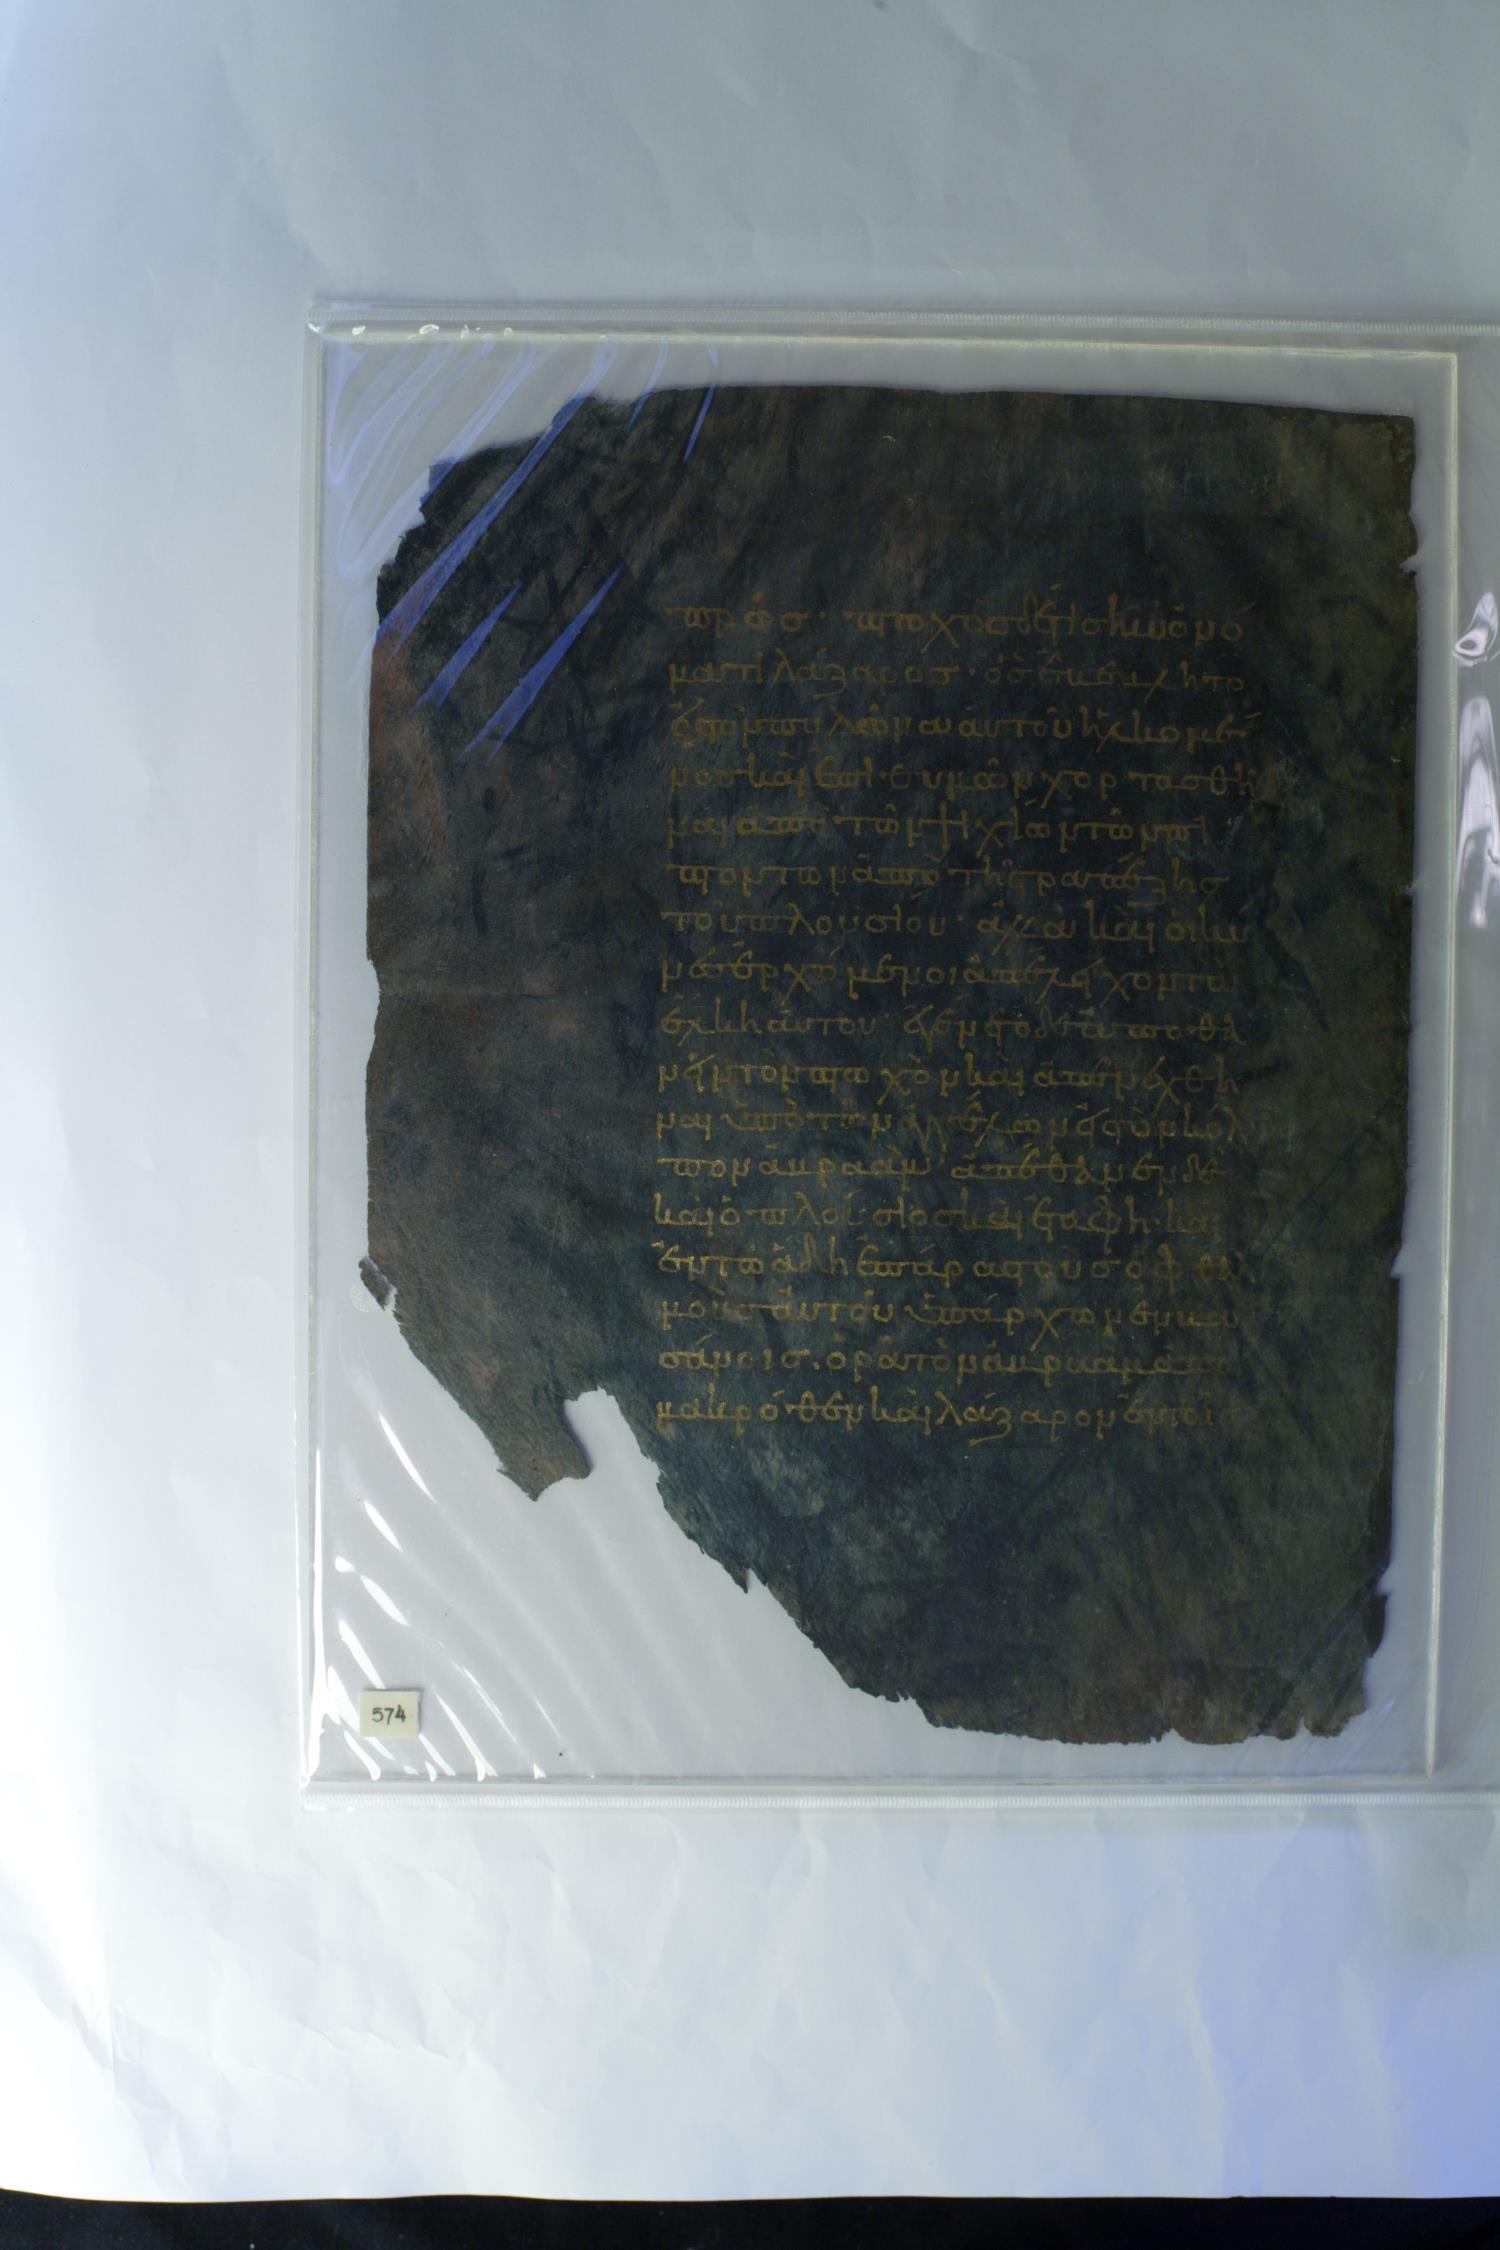 πρῶσ· πτωχὸσ δέ τισ ἦν ὀνό
ματι λάζαροσ· ὃσ ἐβέβλητο
εἰς τὸν πυλῶνα αὐτοῦ ἡλκωμέ
νοσ καὶ ἐπιθυμῶν χορτασθῆ
ναι ἀπὸ τῶν ψιχίων τῶν πι
πτόντων ἀπὸ τῆς τραπέζησ
τοῦ πλουσίου· ἀλλὰ καὶ οἱ κύ
νεσ ἐρχόμενοι ἀπέλειχον τὰ
ἕλκη αὐτοῦ· ἐγένετο δὲ ἀποθα
νεῖν τὸν πτωχὸν καὶ ἀπενεχθῆ
ναι ὑπὸ τῶν ἀγγέλων εἰς τὸν κόλ
πον ἀβραάμ· ἀπέθανεν δὲ
καὶ ὁ πλούσιοσ καὶ ἐτάφη· καὶ
ἐν τῷ ἅδη ἐπάρασ τοὺσ ὀφθαλ
μοὺσ αὐτοῦ ὑπάρχων ἐν βα
σάνοισ. ὁρᾶ τὸν ἀβραὰμ ἀπὸ
μακρόθεν καὶ λάζαρον ἐν τοῖσ
574